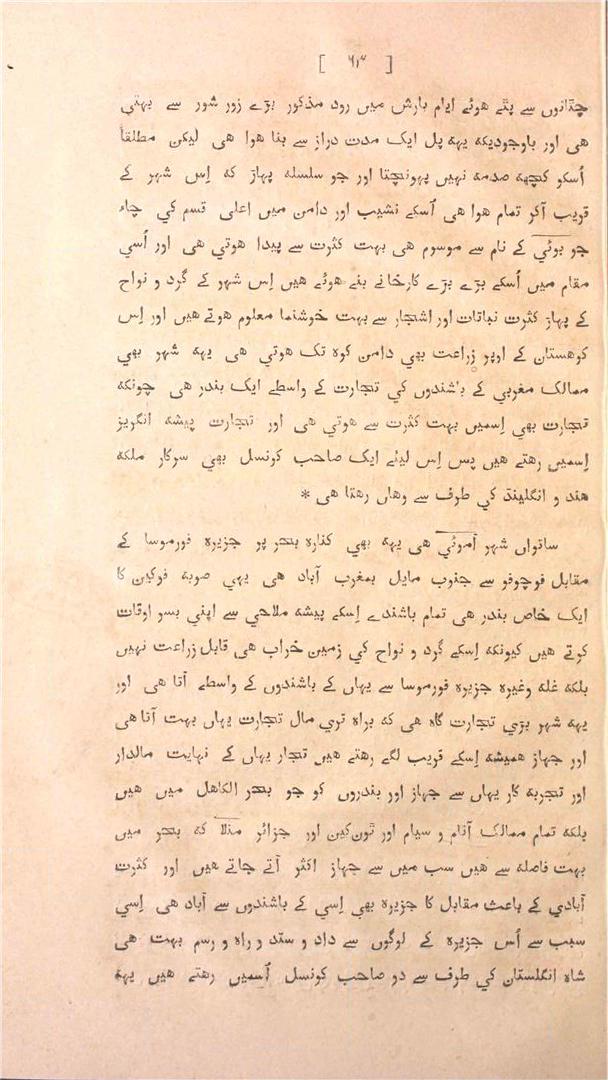 [ ۶۳ ]
چتانوں سے پٹے هوئے ایام بارش میں رود مذکور بڑے زور شور سے بهتی
هی اور باوجودیکه یهه پل ایک مدت دراز سے بنا هوا هی لیکن مطلقاً
اُسکو کچهه صدمه نهیں پهونچتا اور جو سلسله پهاڑ که اِس شهر کے
قریب آکر تمام هوا هی اُسکے نشیب اور دامن میں اعلی قسم کي چاء
جو بوئي کے نام سے موسوم هی بهت کثرت سے پیدا هوتي هی اور اُسي
مقام میں اُسکے بڑے بڑے کارخانے بنے هوئے هیں اِس شهر کے گرد و نواح
کے پهاڑ کثرت نباتات اور اشجار سے بهت خوشنما معلوم هوتے هیں اور اِس
کوهستان کے اوپر زراعت بهي دامن کوه تک هوتي هی یهه شهر بهي
ممالک مغربي کے باشندوں کي تجارت کے واسطے ایک بندر هی چونکه
تجارت بهي اِسمیں بهت کثرت سے هوتي هی اور تجارت پیشه انگریز
اِسمیں رهتے هیں پس اِس لیئے ایک صاحب کونسل بهي سرکار ملکه
هند و انگلینڈ کي طرف سے وهاں رهتا هی *
ساتواں شهر آموئي هی یهه بهي کناره بحر پر جزیره فورموسا کے
مقابل فوچوفر سے جنوب مایل بمغرب آباد هی یهي صوبه فوکین کا
ایک خاص بندر هی تمام باشندے اِسکے پیشه ملاحي سے اپني بسر اوقات
کرتے هیں کیونکه اِسکے گرد و نواح کي زمین خراب هی قابل زراعت نهیں
بلکه غله وغیره جزیره فورموسا سے یهاں کے باشندوں کے واسطے آتا هی اور
یهه شهر بڑي تجارت گاه هی که براه تري مال تجارت یهاں بهت آتا هی
اور جهاز همیشه اِسکے قریب لگے رهتے هیں تجار یهاں کے نهایت مالدار
اور تجربه کار یهاں سے جهاز اور بندروں کو جو بحر الکاهل میں هیں
بلکه تمام ممالک آنام و سیام اور ٹونکین اور جزائر منلا که بحر میں
بهت فاصله سے هیں سب میں سے جهاز اکثر آتے جاتے هیں اور کثرت
آبادي کے باعث مقابل کا جزیره بهي اِسي کے باشندوں سے آباد هی اِسي
سبب سے اُس جزیره کے لوگوں سے داد و ستد و راه و رسم بهت هی
شاه انگلستان کي طرف سے دو صاحب کونسل اُسمیں رهتے هیں یهه